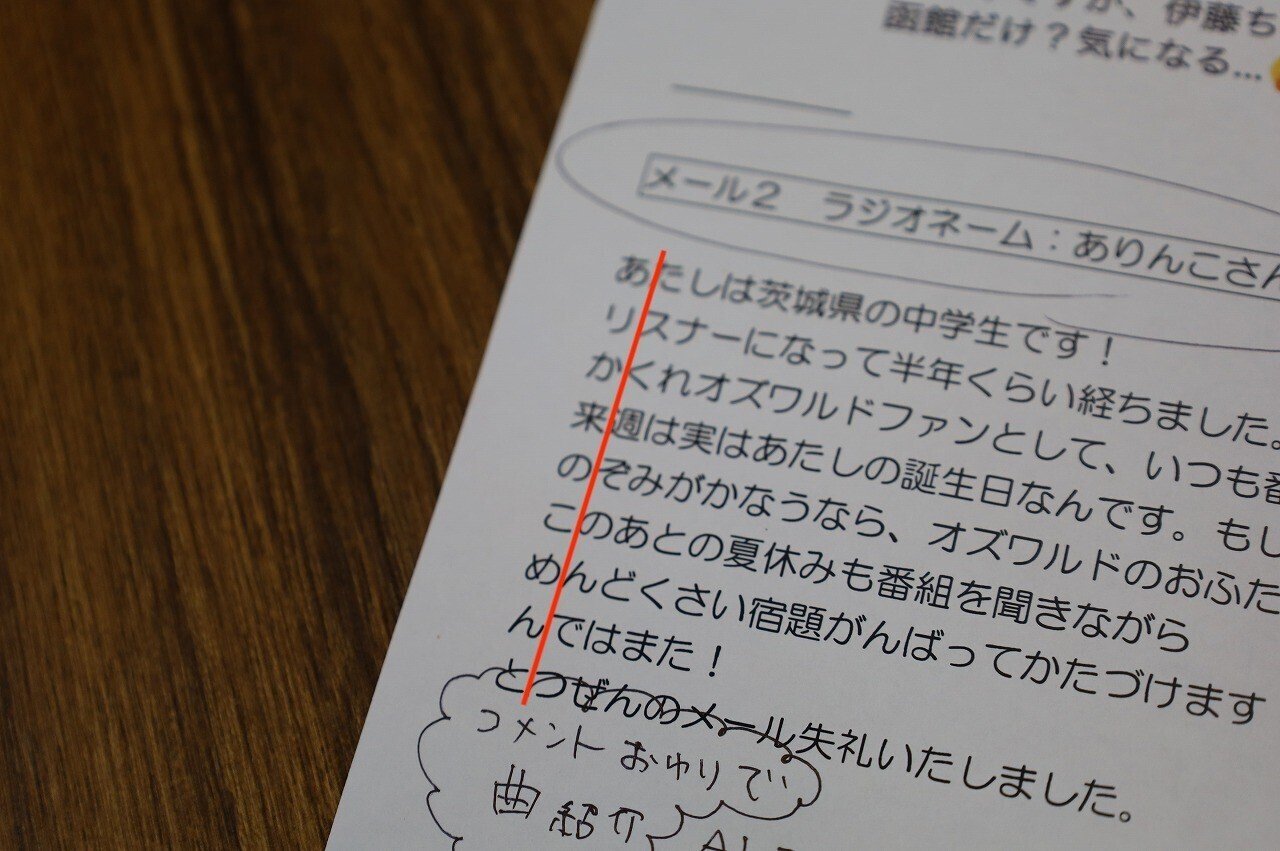 伊藤ち
函館だけ？気になる…
メール２　ラジオネーム：ありんこさん
あたしは茨城県の中学生です！
リスナーになって半年くらい経ちました。
かくれオズワルドファンとして、いつも番
来週は実はあたしの誕生日なんです。もし
のぞみがかなうなら、オズワルドのおふた
このあとの夏休みも番組を聞きながら
めんどくさい宿題がんばってかたづけます
んではまた！
とつぜんのメール失礼いたしました。
コメントおわりで
曲紹介